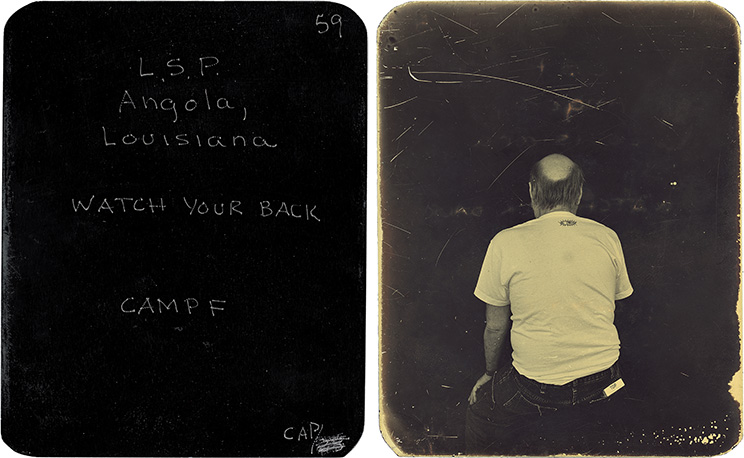 59
L.S.P.
Angola,
Louisiana
WATCH YOUR BACK
CAMP F
CAP/